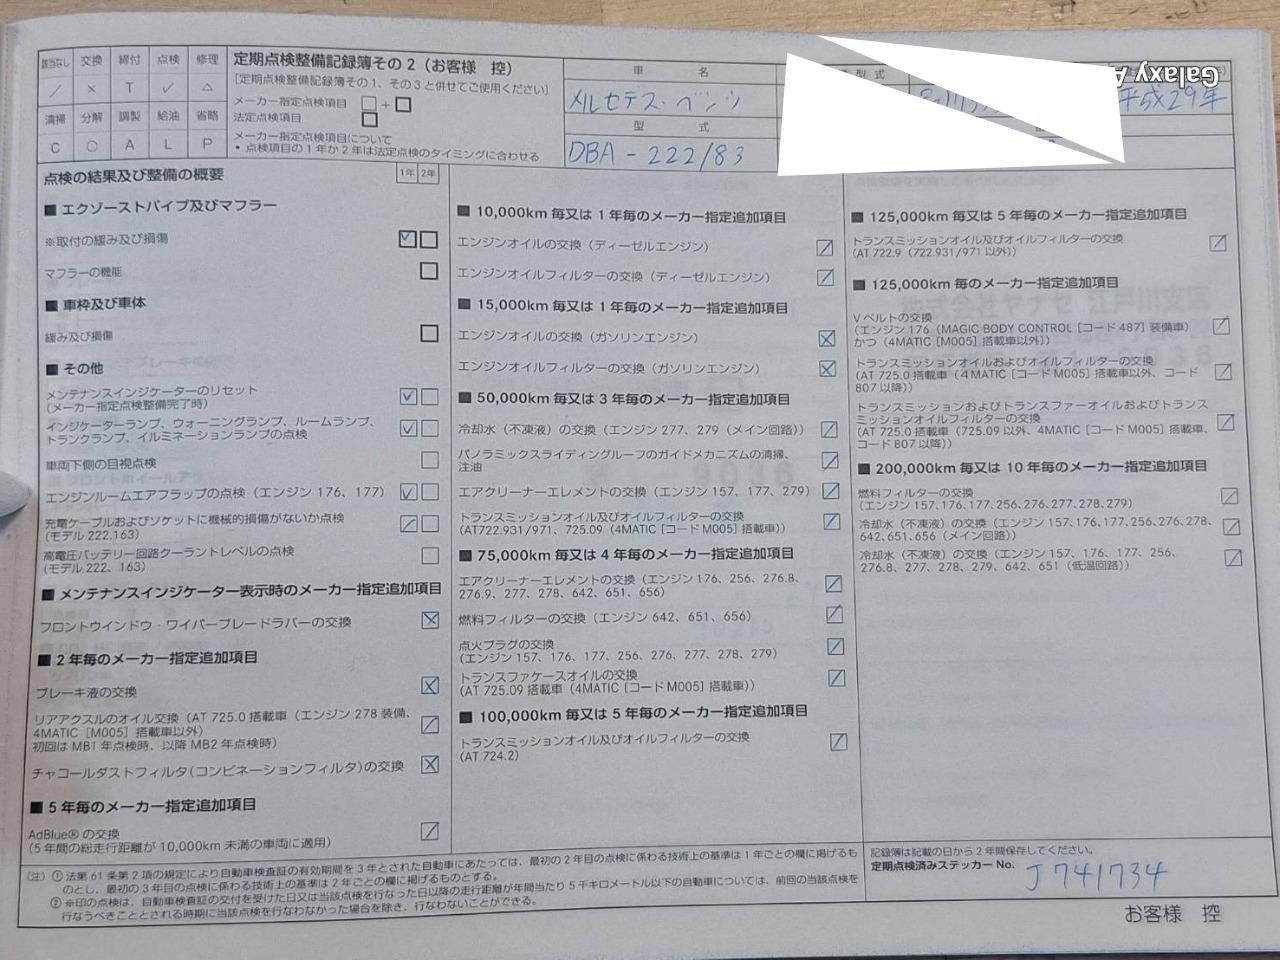 該当なし 交換 締付 点検 修理
／ × T ✓ △
清掃 分解 調製 給油 省略
C ○ A L P
定期点検整備記録簿その2（お客様 控）
［定期点検整備記録簿その1、その3と併せてご使用ください］
メーカー指定点検項目 □＋□
法定点検項目 □
メーカー指定点検項目について
• 点検項目の1年か2年は法定点検のタイミングに合わせる
車 名
メルセデス・ベンツ
型 式
DBA-222183
型 式
平成29年
Galaxy A
点検の結果及び整備の概要
1年 2年
■ エクゾーストパイプ及びマフラー
※取付の緩み及び損傷
マフラーの機能
■ 車枠及び車体
緩み及び損傷
■ その他
メンテナンスインジケーターのリセット
（メーカー指定点検整備完了時）
インジケーターランプ、ウォーニングランプ、ルームランプ、
トランクランプ、イルミネーションランプの点検
車両下側の目視点検
エンジンルームエアフラップの点検（エンジン 176、177）
充電ケーブルおよびソケットに機械的損傷がないか点検
（モデル 222.163）
高電圧バッテリー回路クーラントレベルの点検
（モデル 222、163）
■ メンテナンスインジケーター表示時のメーカー指定追加項目
フロントウインドウ・ワイパーブレードラバーの交換
■ 2年毎のメーカー指定追加項目
ブレーキ液の交換
リアアクスルのオイル交換（AT 725.0 搭載車（エンジン 278 装備、
4MATIC［M005］搭載車以外）
初回は MB1 年点検時、以降 MB2 年点検時）
チャコールダストフィルタ（コンビネーションフィルタ）の交換
■ 5年毎のメーカー指定追加項目
AdBlue® の交換
（5年間の総走行距離が 10,000km 未満の車両に適用）
■ 10,000km 毎又は1年毎のメーカー指定追加項目
エンジンオイルの交換（ディーゼルエンジン）
エンジンオイルフィルターの交換（ディーゼルエンジン）
■ 15,000km 毎又は1年毎のメーカー指定追加項目
エンジンオイルの交換（ガソリンエンジン）
エンジンオイルフィルターの交換（ガソリンエンジン）
■ 50,000km 毎又は3年毎のメーカー指定追加項目
冷却水（不凍液）の交換（エンジン 277、279（メイン回路））
パノラミックスライディングルーフのガイドメカニズムの清掃、
注油
エアクリーナーエレメントの交換（エンジン 157、177、279）
トランスミッションオイル及びオイルフィルターの交換
（AT722.931/971、725.09（4MATIC［コード M005］搭載車））
■ 75,000km 毎又は4年毎のメーカー指定追加項目
エアクリーナーエレメントの交換（エンジン 176、256、276.8、
276.9、277、278、642、651、656）
燃料フィルターの交換（エンジン 642、651、656）
点火プラグの交換
（エンジン 157、176、177、256、276、277、278、279）
トランスファケースオイルの交換
（AT 725.09 搭載車（4MATIC［コード M005］搭載車））
■ 100,000km 毎又は5年毎のメーカー指定追加項目
トランスミッションオイル及びオイルフィルターの交換
（AT 724.2）
■ 125,000km 毎又は5年毎のメーカー指定追加項目
トランスミッションオイル及びオイルフィルターの交換
（AT 722.9（722.931/971 以外））
■ 125,000km 毎のメーカー指定追加項目
Vベルトの交換
（エンジン 176（MAGIC BODY CONTROL［コード 487］装備車）
かつ（4MATIC［M005］搭載車以外））
トランスミッションオイルおよびオイルフィルターの交換
（AT 725.0 搭載車（4MATIC［コード M005］搭載車以外、コード
807 以降））
トランスミッションおよびトランスファーオイルおよびトランス
ミッションオイルフィルターの交換
（AT 725.0 搭載車（725.09 以外、4MATIC［コード M005］搭載車、
コード 807 以降））
■ 200,000km 毎又は10年毎のメーカー指定追加項目
燃料フィルターの交換
（エンジン 157.176.177.256.276.277.278.279）
冷却水（不凍液）の交換（エンジン 157.176.177.256.276.278、
642.651.656（メイン回路））
冷却水（不凍液）の交換（エンジン 157、176、177、256、
276.8、277、278、279、642、651（低温回路））
（注）① 法第 61 条第 2 項の規定により自動車検査証の有効期間を 3 年とされた自動車にあたっては、最初の 2 年目の点検に係わる技術上の基準は 1 年ごとの欄に掲げるも
のとし、最初の 3 年目の点検に係わる技術上の基準は 2 年ごとの欄に掲げるものとする。
② ※印の点検は、自動車検査証の交付を受けた日又は当該点検を行なった日以降の走行距離が年間当たり 5 千キロメートル以下の自動車については、前回の当該点検を
行なうべきこととされる時期に当該点検を行なわなかった場合を除き、行なわないことができる。
記録簿は記載の日から 2 年間保存してください。
定期点検済みステッカー No.
J741734
お客様 控